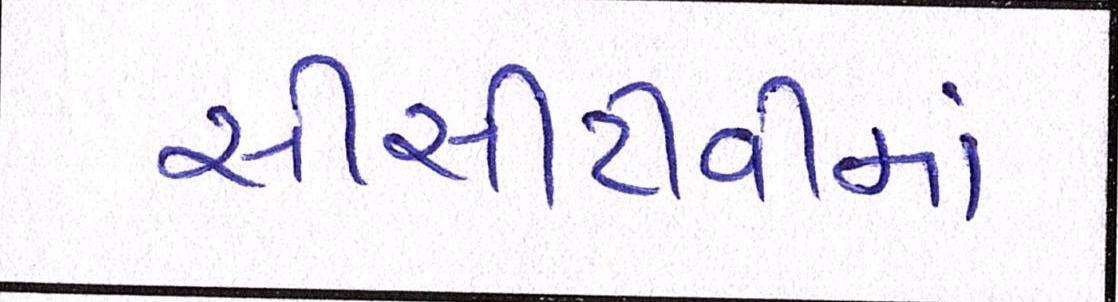 સીસીટીવીમાં